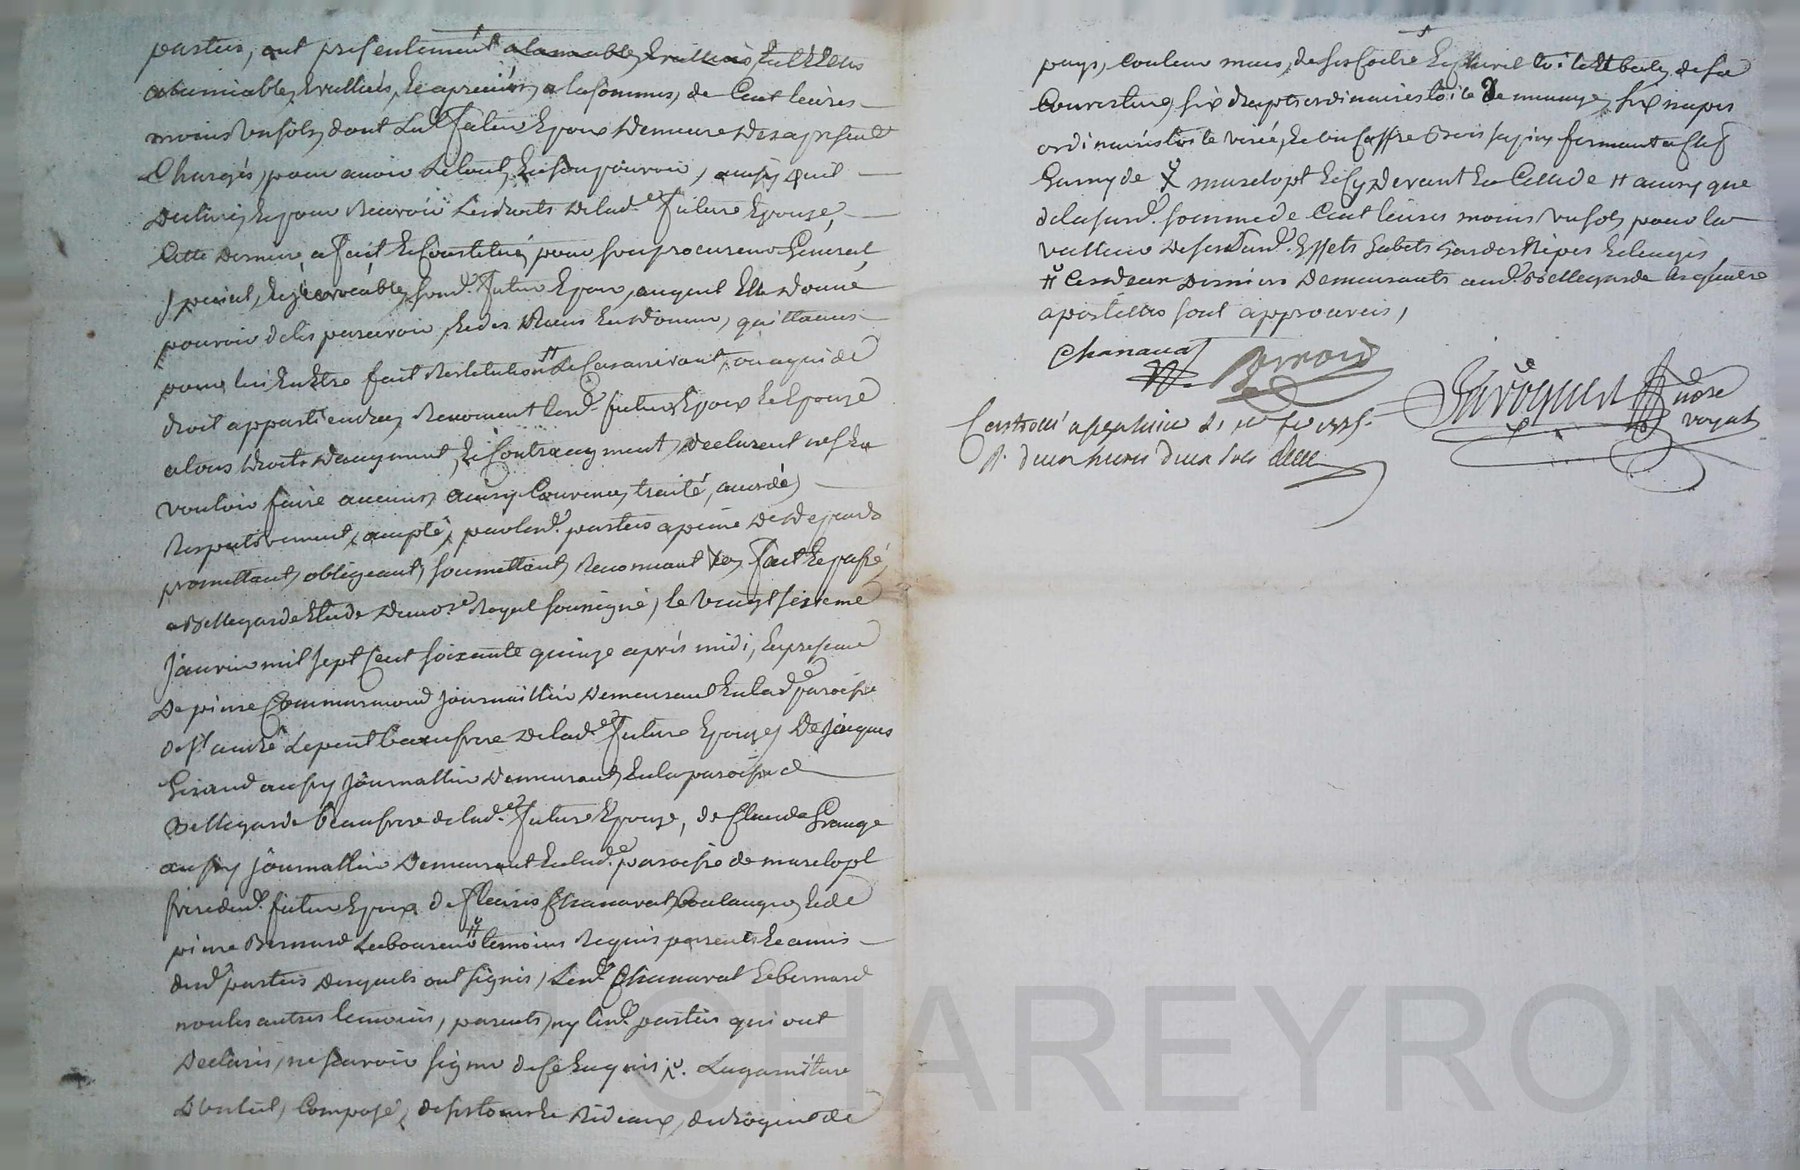 parties, ont presentement alamiable Evalluès
alamiable, Evalluès, Et apreciés, a la somme, de Cent livres
moins un sols, dont Led. futur Epoux demeure desapresent
Chargés, pour avoir Letout, En son pouvoir, ainsy quil
declare, Et pour Recevoir Lesdroits delad.e future Epouze,
Cette derniere, a fait Et Constitué, pour son procureur General
special, Et irrevocable, led. futur Epoux, auquel Elle donne
pouvoir de les percevoir, Et des Recus En donner, quittances
pour, lui En Etre fait Restitution # Le Cas arrivant, ou aqui de
droit appartiendra, Renoncent lesd. futurs Epoux Et Epouze
atous droits daugment, Et Contraugment, declarent nesen
vouloir faire aucuns, ainsy Convenu, traité, accordé,
Respectivement, accepté, par lesd. parties apeine de depends
promettant, obligeant, soumettant, Renonceant &a, fait Et passé,
a Bellegarde Etude dunore Royal soussigné, le vingt sixieme
Janvier mil sept Cent soixante quinze après midi, En presence
De pierre Commarmond Journallier Demeurant En lad.e paroisse
de st andré Le puit beaufrere delad.e future Epouze, De Jacques
Giraud aussy Journallier Demeurant, En la paroisse de
Bellegarde beaufrere delad.e future Epouze, de Claude Grange
aussy Journallier Demeurant En lad.e paroisse de marclopt
frere dud. futur Epoux, de fleuris Chanavat, Boulanger, Et de
pierre Bernard Laboureur # temoins Requis parents Et amis
desd. parties desquels ont signés, Lesd. Chanavat Et bernard
non les autres temoins, parents, ny lesd. parties qui ont
declarés, ne scavoir signer de ce Enquis x. La garniture
D'un lit, Composé, de ses tours de Rideaux, de
pays, Couleur mure, de sa Coitre Et Chevet toile Et balle, de sa
Couverture, six draps ordinaires toile de menage, six napes
ordinaires toile, Et un Coffre Bois sapin fermant a Clef
Garny de X marclopt Et Cydevant En Celle de # ainsy que
de la susd. somme de Cent livres moins un sols, pour la
valleur Desesdits. Effets habits hardes Nipes Et linges
# Ces deux derniers Demeurants aud. Bellegarde Les quatre
apostilles sont approuvés,
Chanavat
Bernard
Javogues
nore
royal
Controllé a
R. deux livres deux sols
CHAREYRON